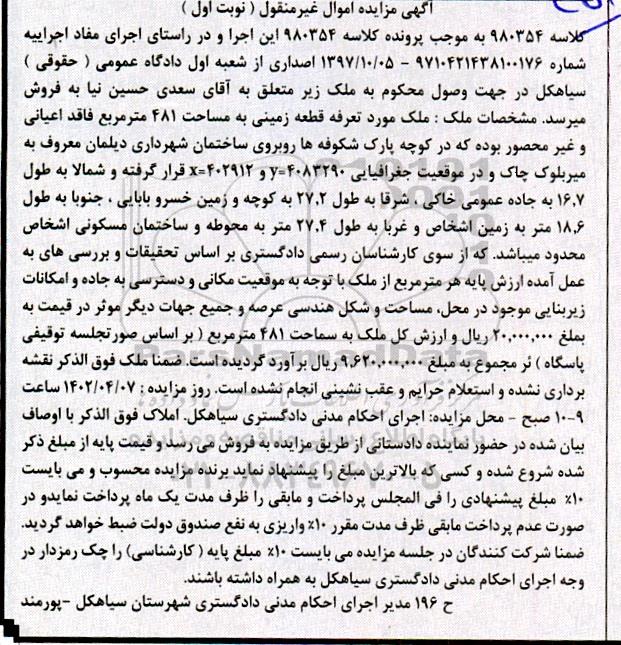 آگهی مزایده اموال غیرمنقول ( نوبت اول )
کلاسه ۹۸۰۳۵۴ به موجب پرونده کلاسه ۹۸۰۳۵۴ این اجرا و در راستای اجرای مفاد اجراییه
شماره ۹۷۱۰۴۲۱۴۳۸۱۰۰۱۷۶ - ۱۳۹۷/۱۰/۰۵ اصداری از شعبه اول دادگاه عمومی ( حقوقی )
سیاهکل در جهت وصول محکوم به ملک زیر متعلق به آقای سعدی حسین نیا به فروش
میرسد. مشخصات ملک : ملک مورد تعرفه قطعه زمینی به مساحت ۴۸۱ مترمربع فاقد اعیانی
و غیر محصور بوده که در کوچه پارک شکوفه ها روبروی ساختمان شهرداری دیلمان معروف به
میربلوک چاک و در موقعیت جغرافیایی y=۴۰۸۳۲۹۰ و x=۴۰۲۹۱۲ قرار گرفته و شمالا به طول
۱۶.۷ به جاده عمومی خاکی ، شرقا به طول ۲۷.۲ به کوچه و زمین خسرو بابایی ، جنوبا به طول
۱۸.۶ متر به زمین اشخاص و غربا به طول ۲۷.۴ متر به محوطه و ساختمان مسکونی اشخاص
محدود میباشد. که از سوی کارشناسان رسمی دادگستری بر اساس تحقیقات و بررسی های به
عمل آمده ارزش پایه هر مترمربع از ملک با توجه به موقعیت مکانی و دسترسی به جاده و امکانات
زیربنایی موجود در محل، مساحت و شکل هندسی عرصه و جمیع جهات دیگر موثر در قیمت به
بملغ ۲۰,۰۰۰,۰۰۰ ریال و ارزش کل ملک به سماحت ۴۸۱ مترمربع ( بر اساس صورتجلسه توقیفی
پاسگاه ) ئر مجموع به مبلغ ۹,۶۲۰,۰۰۰,۰۰۰ ریال برآورد گردیده است. ضمنا ملک فوق الذکر نقشه
برداری نشده و استعلام جرایم و عقب نشینی انجام نشده است. روز مزایده : ۱۴۰۲/۰۴/۰۷ ساعت
۹-۱۰ صبح - محل مزایده: اجرای احکام مدنی دادگستری سیاهکل. املاک فوق الذکر با اوصاف
بیان شده در حضور نماینده دادستانی از طریق مزایده به فروش می رسد و قیمت پایه از مبلغ ذکر
شده شروع شده و کسی که بالاترین مبلغ را پیشنهاد نماید برنده مزایده محسوب و می بایست
۱۰٪ مبلغ پیشنهادی را فی المجلس پرداخت و مابقی را ظرف مدت یک ماه پرداخت نمایدو در
صورت عدم پرداخت مابقی ظرف مدت مقرر ۱۰٪ واریزی به نفع صندوق دولت ضبط خواهد گردید.
ضمنا شرکت کنندگان در جلسه مزایده می بایست ۱۰٪ مبلغ پایه ( کارشناسی) را چک رمزدار در
وجه اجرای احکام مدنی دادگستری سیاهکل به همراه داشته باشند.
ح ۱۹۶ مدیر اجرای احکام مدنی دادگستری شهرستان سیاهکل -پورمند